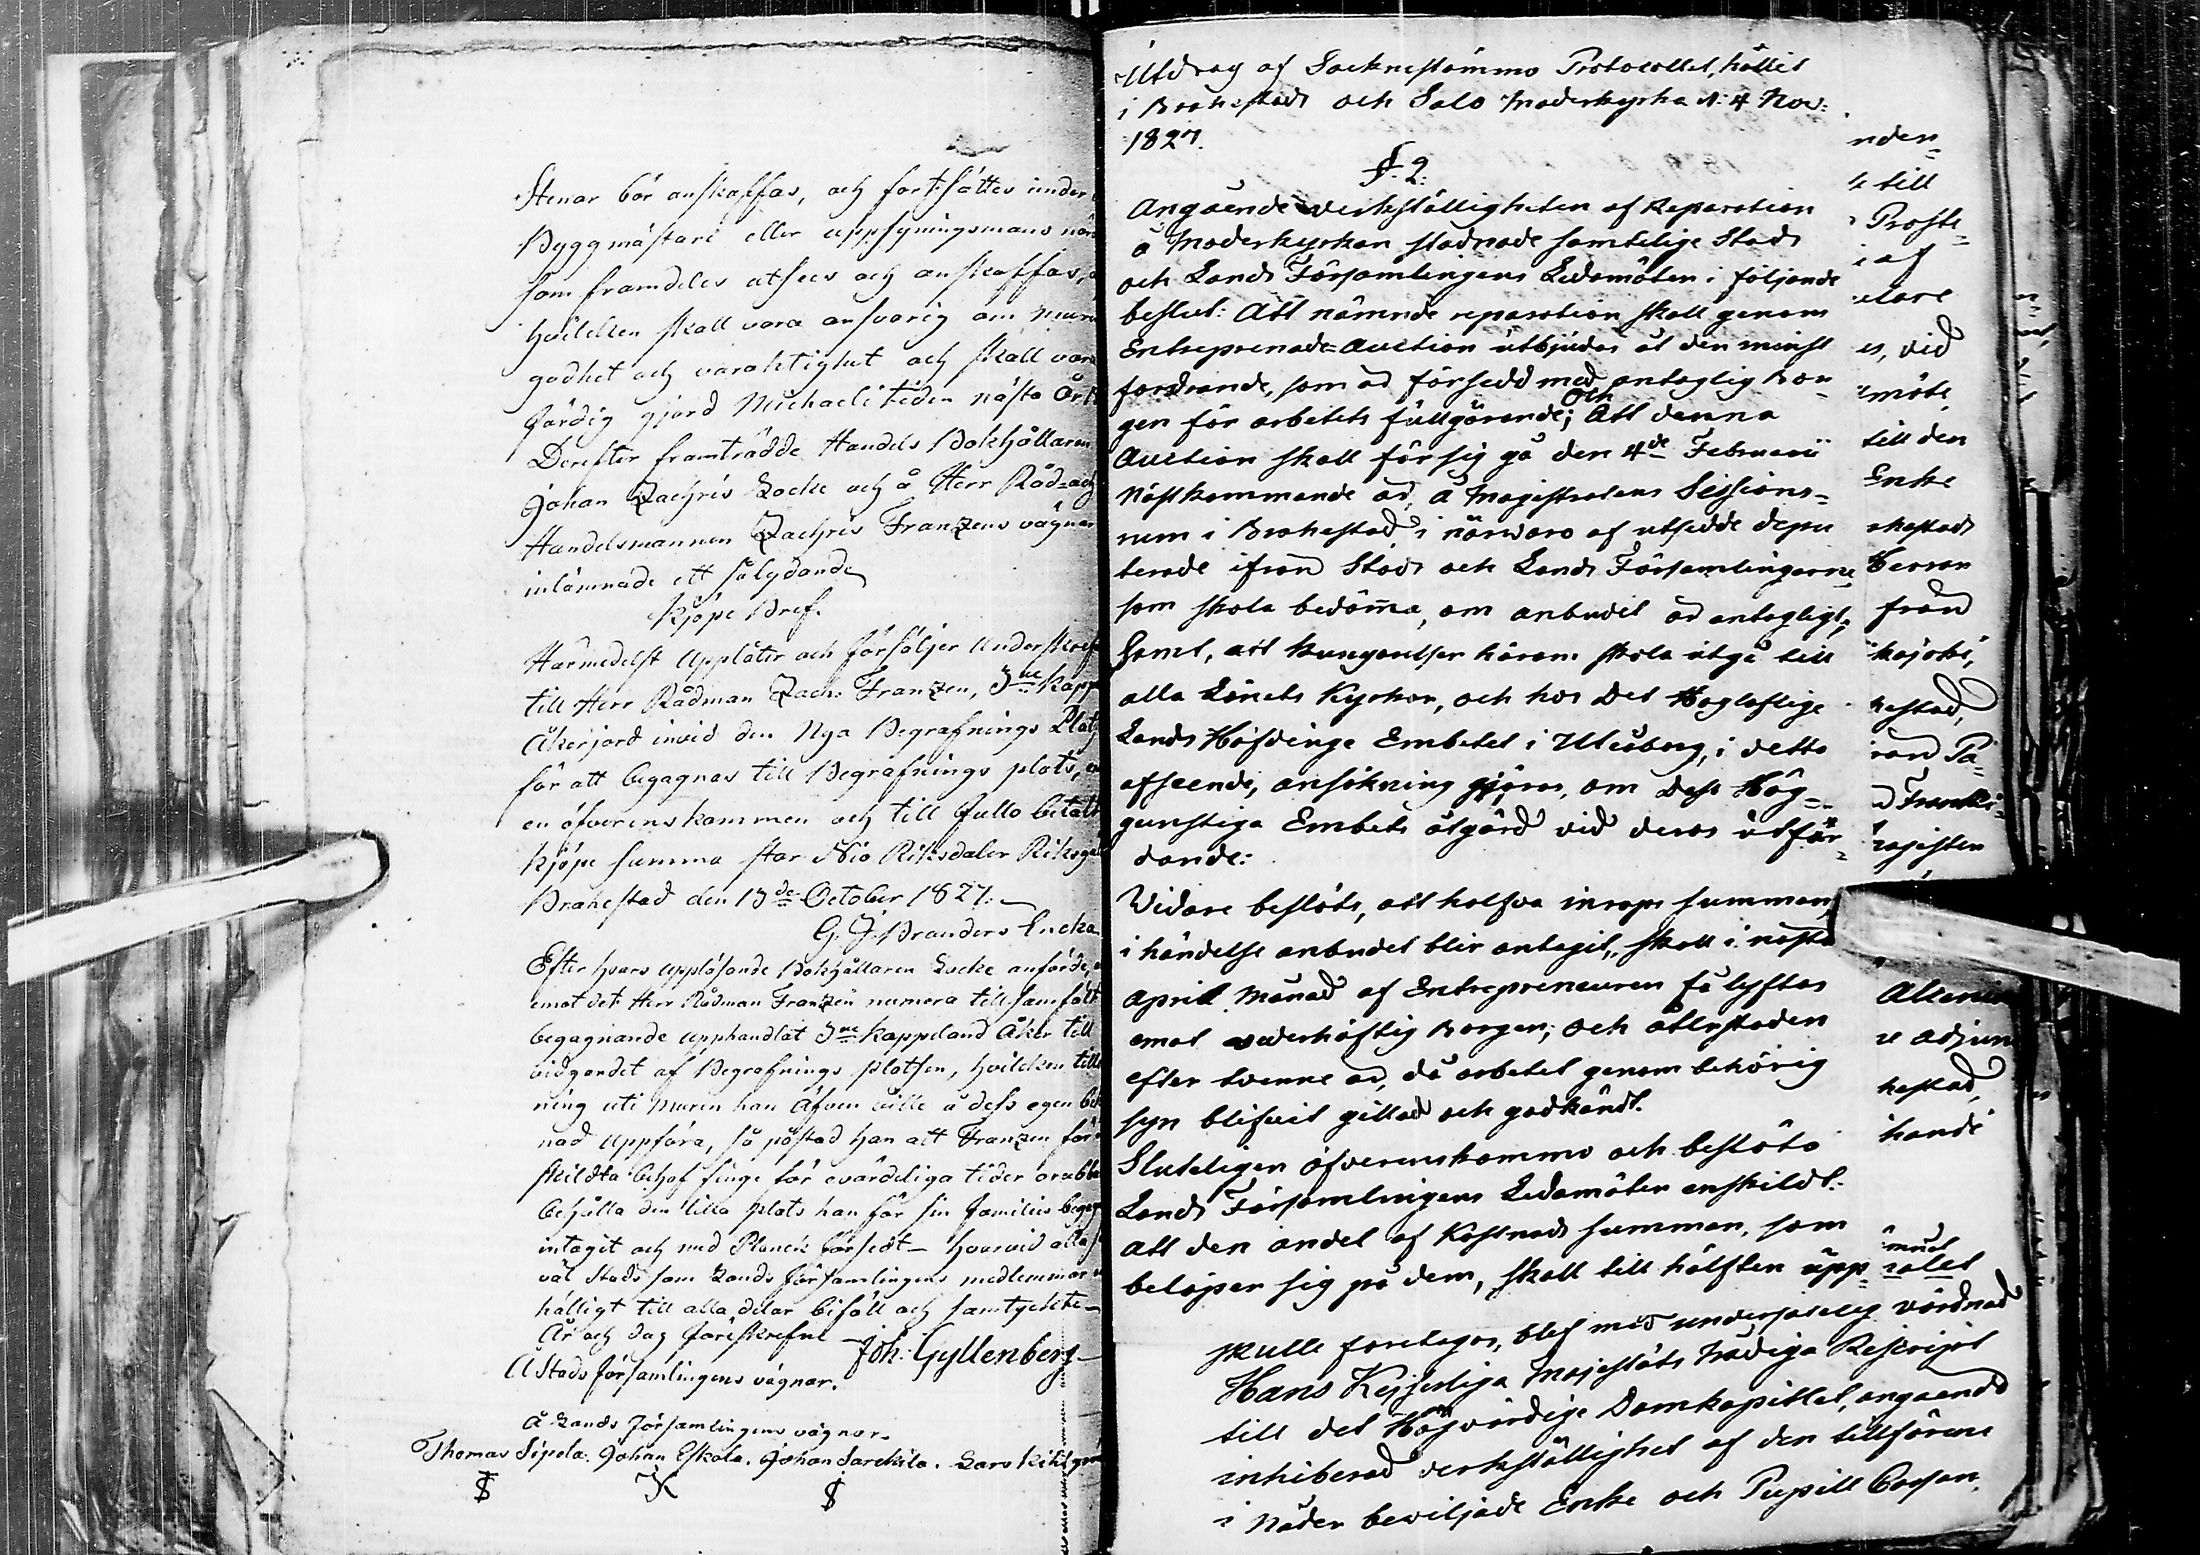 Stenar bör anskaffas, och fort sättes under
Byggmästare eller uppsyningsmans när
som framdeles utsees och anskaffas,
hvilcken skall vara ansvarig om muren
godhet och varaktighet och skall vara
färdig gjord Michaeli tiden nästa År
Derefter framträdde Handels Bokhållaren
Johan Zachris Locke och å Herr Råd- och
Handelsmannen Zachris Franzens vägnar
inlämnade ett sålydande
Kjöpe Bref.
Härmedelst Upplåter och försäljer Underskref
till Herr Rådman Zach: Franzen, 3ne Kapp
Åkerjord invid den Nya Begrafnings Plats
för att begagnas till Begrafnings plats,
en öfverenskommen och till fullo betalt
Kjöpe summa stor Nio Riksdaler Riksgäl
Brahestad den 13de October 1827.
G. J. Branders Encka
Efter hvars uppläsande Bokhållaren Locke anförde,
emot det Herr Rådman Franzén numera till samfält
begagnande upphandlat 3ne Kappeland Åker till
vidgandet af Begrafnings platsen, hvilcken
ning uti muren han äfven ville å dess egen
nad uppföra, så påstod han att Franzen för
skildta behof finge för evärdeliga tider orubbe
behålla den lilla plats han för sin families
intagit och med Planck försedt - hvarvid alla
väl Stads som Lands Församlingens medlemmar
hälligt till alla delar biföll och samtyckte -
År och dag föreskrefne Joh: Gyllenberg
Å Stads församlingens vägnar.
Å Lands Församlingens vägnar.
Thomas Sipola. Johan Eskola. Johan Sarckila. Lars
Utdrag af Socknestämmo Protocollet, hållit
i Brahestads och Salo Moderkyrka d: 4 Nov:
1827.
§. 2.
Angående verkställigheten af Reparation
å Moderkyrkan stadnade samtelige Stads
och Lands Församlingens Ledamöter i följande
beslut: Att nämnde reparation skall genom
Entreprenade-Auction utbjudas åt den minst
fordrande, som är försedd med antaglig Bor-
gen för arbetets fullgörande; Och Att denna
Auction skall för sig gå den 4de Februarii
nästkommande år, å Magistratens Sessions-
rum i Brahestad i närvaro af utsedde depu
terade ifrån Stads och Lands Församlingarne
som skola bedöma, om anbudet är antagligt,
Samt, att kungörelser härom skola utgå till
alla Länets Kyrkor, och hos Det Högloflige
Lands Höfdinge Embetet i Uleåborg, i detta
afseende, ansökning gjöras, om Dess Hög-
gunstiga Embets åtgärd vid deras utfär-
dande:
Vidare beslöts, att halfva inrops summan,
i händelse anbudet blir antagit, skall i nästa
April Månad af Entrepreneuren få lyftas
emot vederhäftig Borgen; och återstoden
efter tvenne år, då arbetet genom behörig
syn blifvit gillad och godkändt.
Sluteligen öfverenskommo och beslöto
Lands Församlingens Ledamöter enskildt:
att den andel af Kostnads summan, som
belöper sig på dem, skall till hälften upp-
skulle foretagas, blef med underdånig vördnad
Hans Kejserliga Majestäts Nådiga Rescript
till det Högvördige Domkapitlet, angaende
inhiberad verkställighet af den tillförene
i Nåder beviljade Enke och Pupill Cassan,
nden-
till
Proste-
af
es, vid
möte
till den
Enke
hestads
Herrar
från
kajoki,
hestad,
hestad,